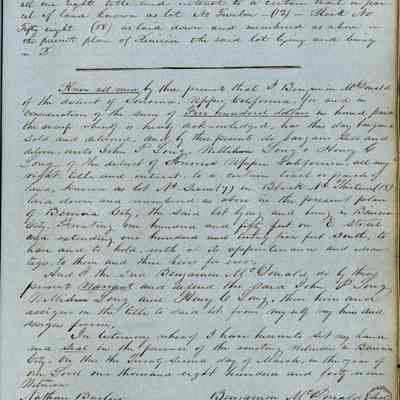 all our right title and interest to a certain tract or par
cel of land known as lot No Twelve (12) Block No
Fifty eight (58) as laid down and numbered as above in
the present plan of Benicia the said lot lying and being
in
Know all men by these presents that I Benjamin McDonald
of the district of Sonoma Upper California for and in
consideration of the sum of Five hundred dollars in hand paid
the receipt whereof is hereby acknowledged, have this day bargained
sold and delivered, and by these presents do bargain sell and
deliver unto John P. Long, William Long & Henry C
Long, of the district of Sonoma Upper California all my
right title and interest, to a certain tract or parcel of
land, known as lot No Seven (7) in Block No Thirteen (13)
laid down and numbered as above in the present plan
of Benicia City, the said lot lying and being in Benicia
City, fronting one hundred and fifty feet on E Street
and extending one hundred and twenty five feet South, to
have and to hold, with all its appurtenances and advan
tages, to them and their heirs for ever.
And I the said Benjamin McDonald do by these
presents Warrant and defend the said John P Long
William Long and Henry C Long, their heirs and
assigns in the title to said lot from myself my heirs and
assigns forever.
In testimony whereof I have hereunto set my hand
and seal in the presence of the subscribing witnesses in Benicia
City, On this the Twenty Second day of March, in the year of
our Lord one thousand eight hundred and forty nine
Witness
Nathan Barbour Benjamin McDonald